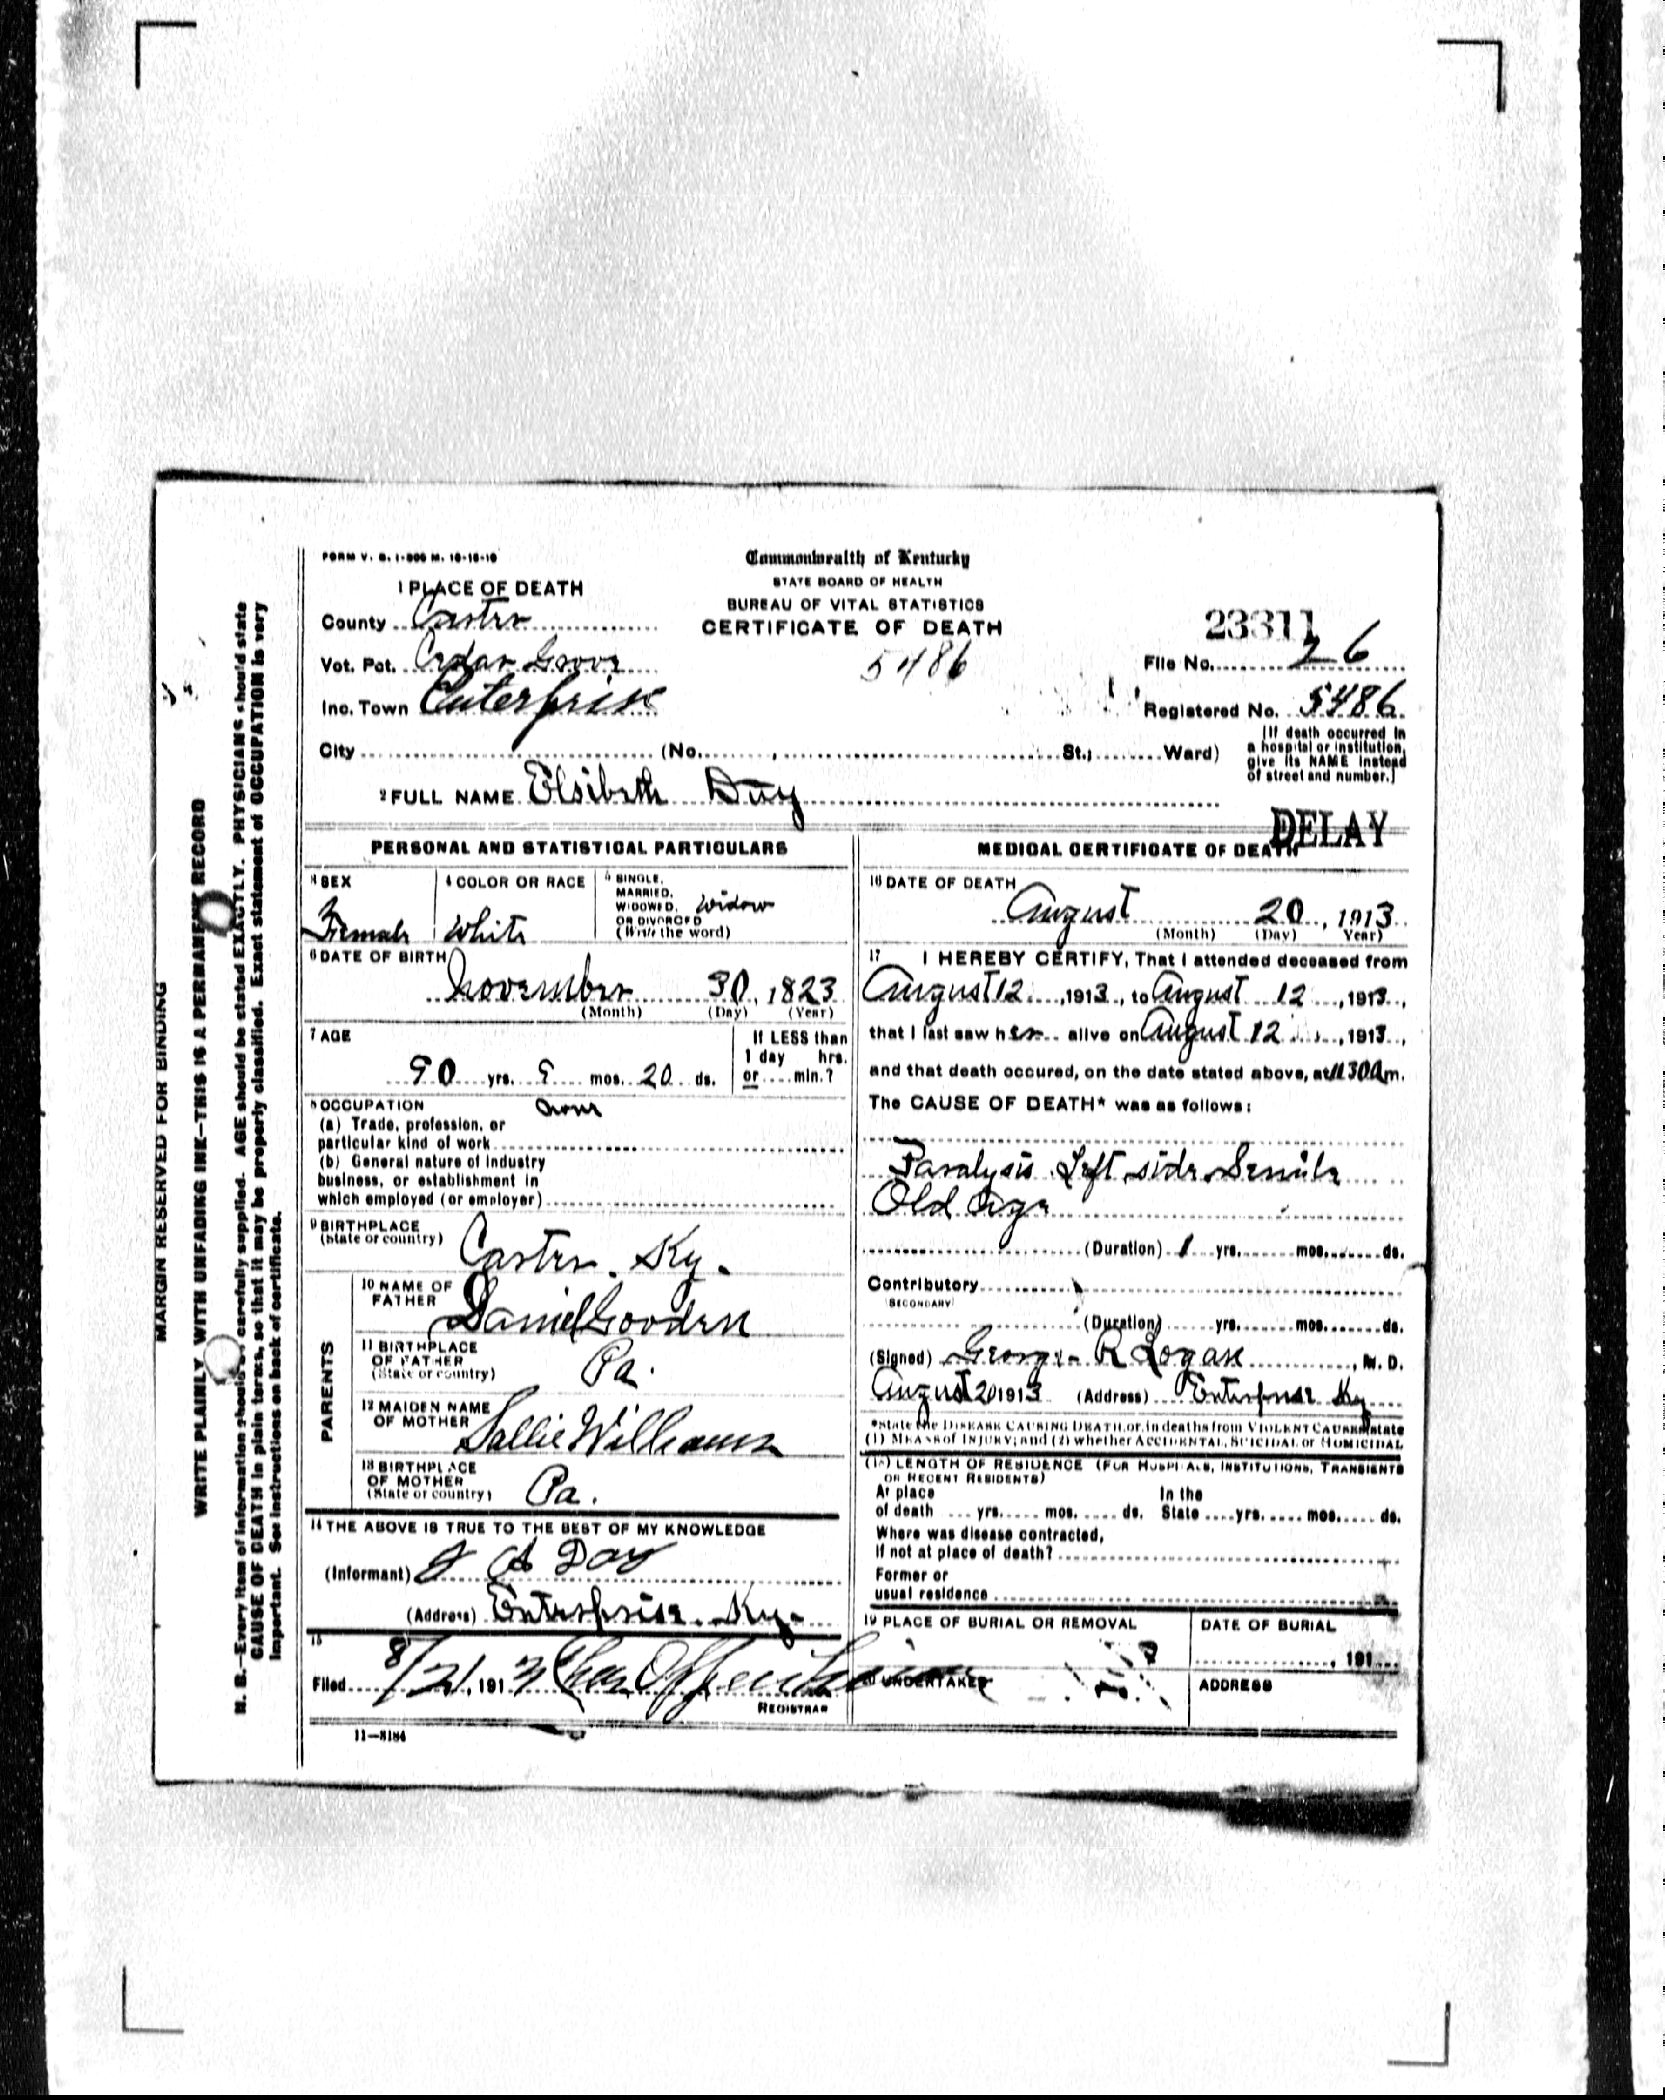 FORM V. S. 1-500 M. 10-10-10
Commonwealth of Kentucky
STATE BOARD OF HEALTH
BUREAU OF VITAL STATISTICS
CERTIFICATE OF DEATH
1 PLACE OF DEATH
County Carter
Vot. Pct. Cedar Grove
Inc. Town Enterprise
City (No. , St.; Ward)
5486
23311
File No. 26
Registered No. 5486
[If death occurred in
a hospital or institution,
give its NAME instead
of street and number.]
2 FULL NAME Elsibeth Day
DELAY
PERSONAL AND STATISTICAL PARTICULARS
3 SEX
Female
4 COLOR OR RACE
White
5 SINGLE,
MARRIED,
WIDOWED, Widow
OR DIVORCED
(Write the word)
6 DATE OF BIRTH
November 30, 1823
(Month) (Day) (Year)
7 AGE
90 yrs. 9 mos. 20 ds.
If LESS than
1 day hrs.
or min.?
8 OCCUPATION
(a) Trade, profession, or
particular kind of work
(b) General nature of industry
business, or establishment in
which employed (or employer)
9 BIRTHPLACE
(State or country)
Carter. Ky.
PARENTS
10 NAME OF
FATHER
Daniel Gooden
11 BIRTHPLACE
OF FATHER
(State or country)
Pa.
12 MAIDEN NAME
OF MOTHER
Sallie Williams
13 BIRTHPLACE
OF MOTHER
(State or country)
Pa.
14 THE ABOVE IS TRUE TO THE BEST OF MY KNOWLEDGE
(Informant) Day
(Address) Enterprise. Ky.
15
Filed 8/21, 1913
REGISTRAR
11—3184
MEDICAL CERTIFICATE OF DEATH
16 DATE OF DEATH
August 20, 1913
(Month) (Day) Year)
17 I HEREBY CERTIFY, That I attended deceased from
August 12, 1913, to August 12, 1913,
that I last saw her alive on August 12, 1913,
and that death occured, on the date stated above, at 11 30 a m.
The CAUSE OF DEATH* was as follows:
Paralysis Left side Senile
Old Age
(Duration) 1 yrs. mos. ds.
Contributory
(SECONDARY)
(Duration) yrs. mos. ds.
(Signed) George R Logan, M. D.
August 20 1913 (Address) Enterprise Ky
*State the DISEASE CAUSING DEATH, or, in deaths from VIOLENT CAUSES, state
(1) MEANS of INJURY; and (2) whether ACCIDENTAL, SUICIDAL or HOMICIDAL
(18) LENGTH OF RESIDENCE (FOR HOSPITALS, INSTITUTIONS, TRANSIENTS
OR RECENT RESIDENTS)
At place In the
of death yrs. mos. ds. State yrs. mos. ds.
Where was disease contracted,
if not at place of death?
Former or
usual residence
19 PLACE OF BURIAL OR REMOVAL
DATE OF BURIAL
, 191
20 UNDERTAKER
ADDRESS
MARGIN RESERVED FOR BINDING
WRITE PLAINLY WITH UNFADING INK—THIS IS A PERMANENT RECORD
N. B.—Every item of information should be carefully supplied. AGE should be stated EXACTLY. PHYSICIANS should state
CAUSE OF DEATH in plain terms, so that it may be properly classified. Exact statement of OCCUPATION is very
important. See instructions on back of certificate.